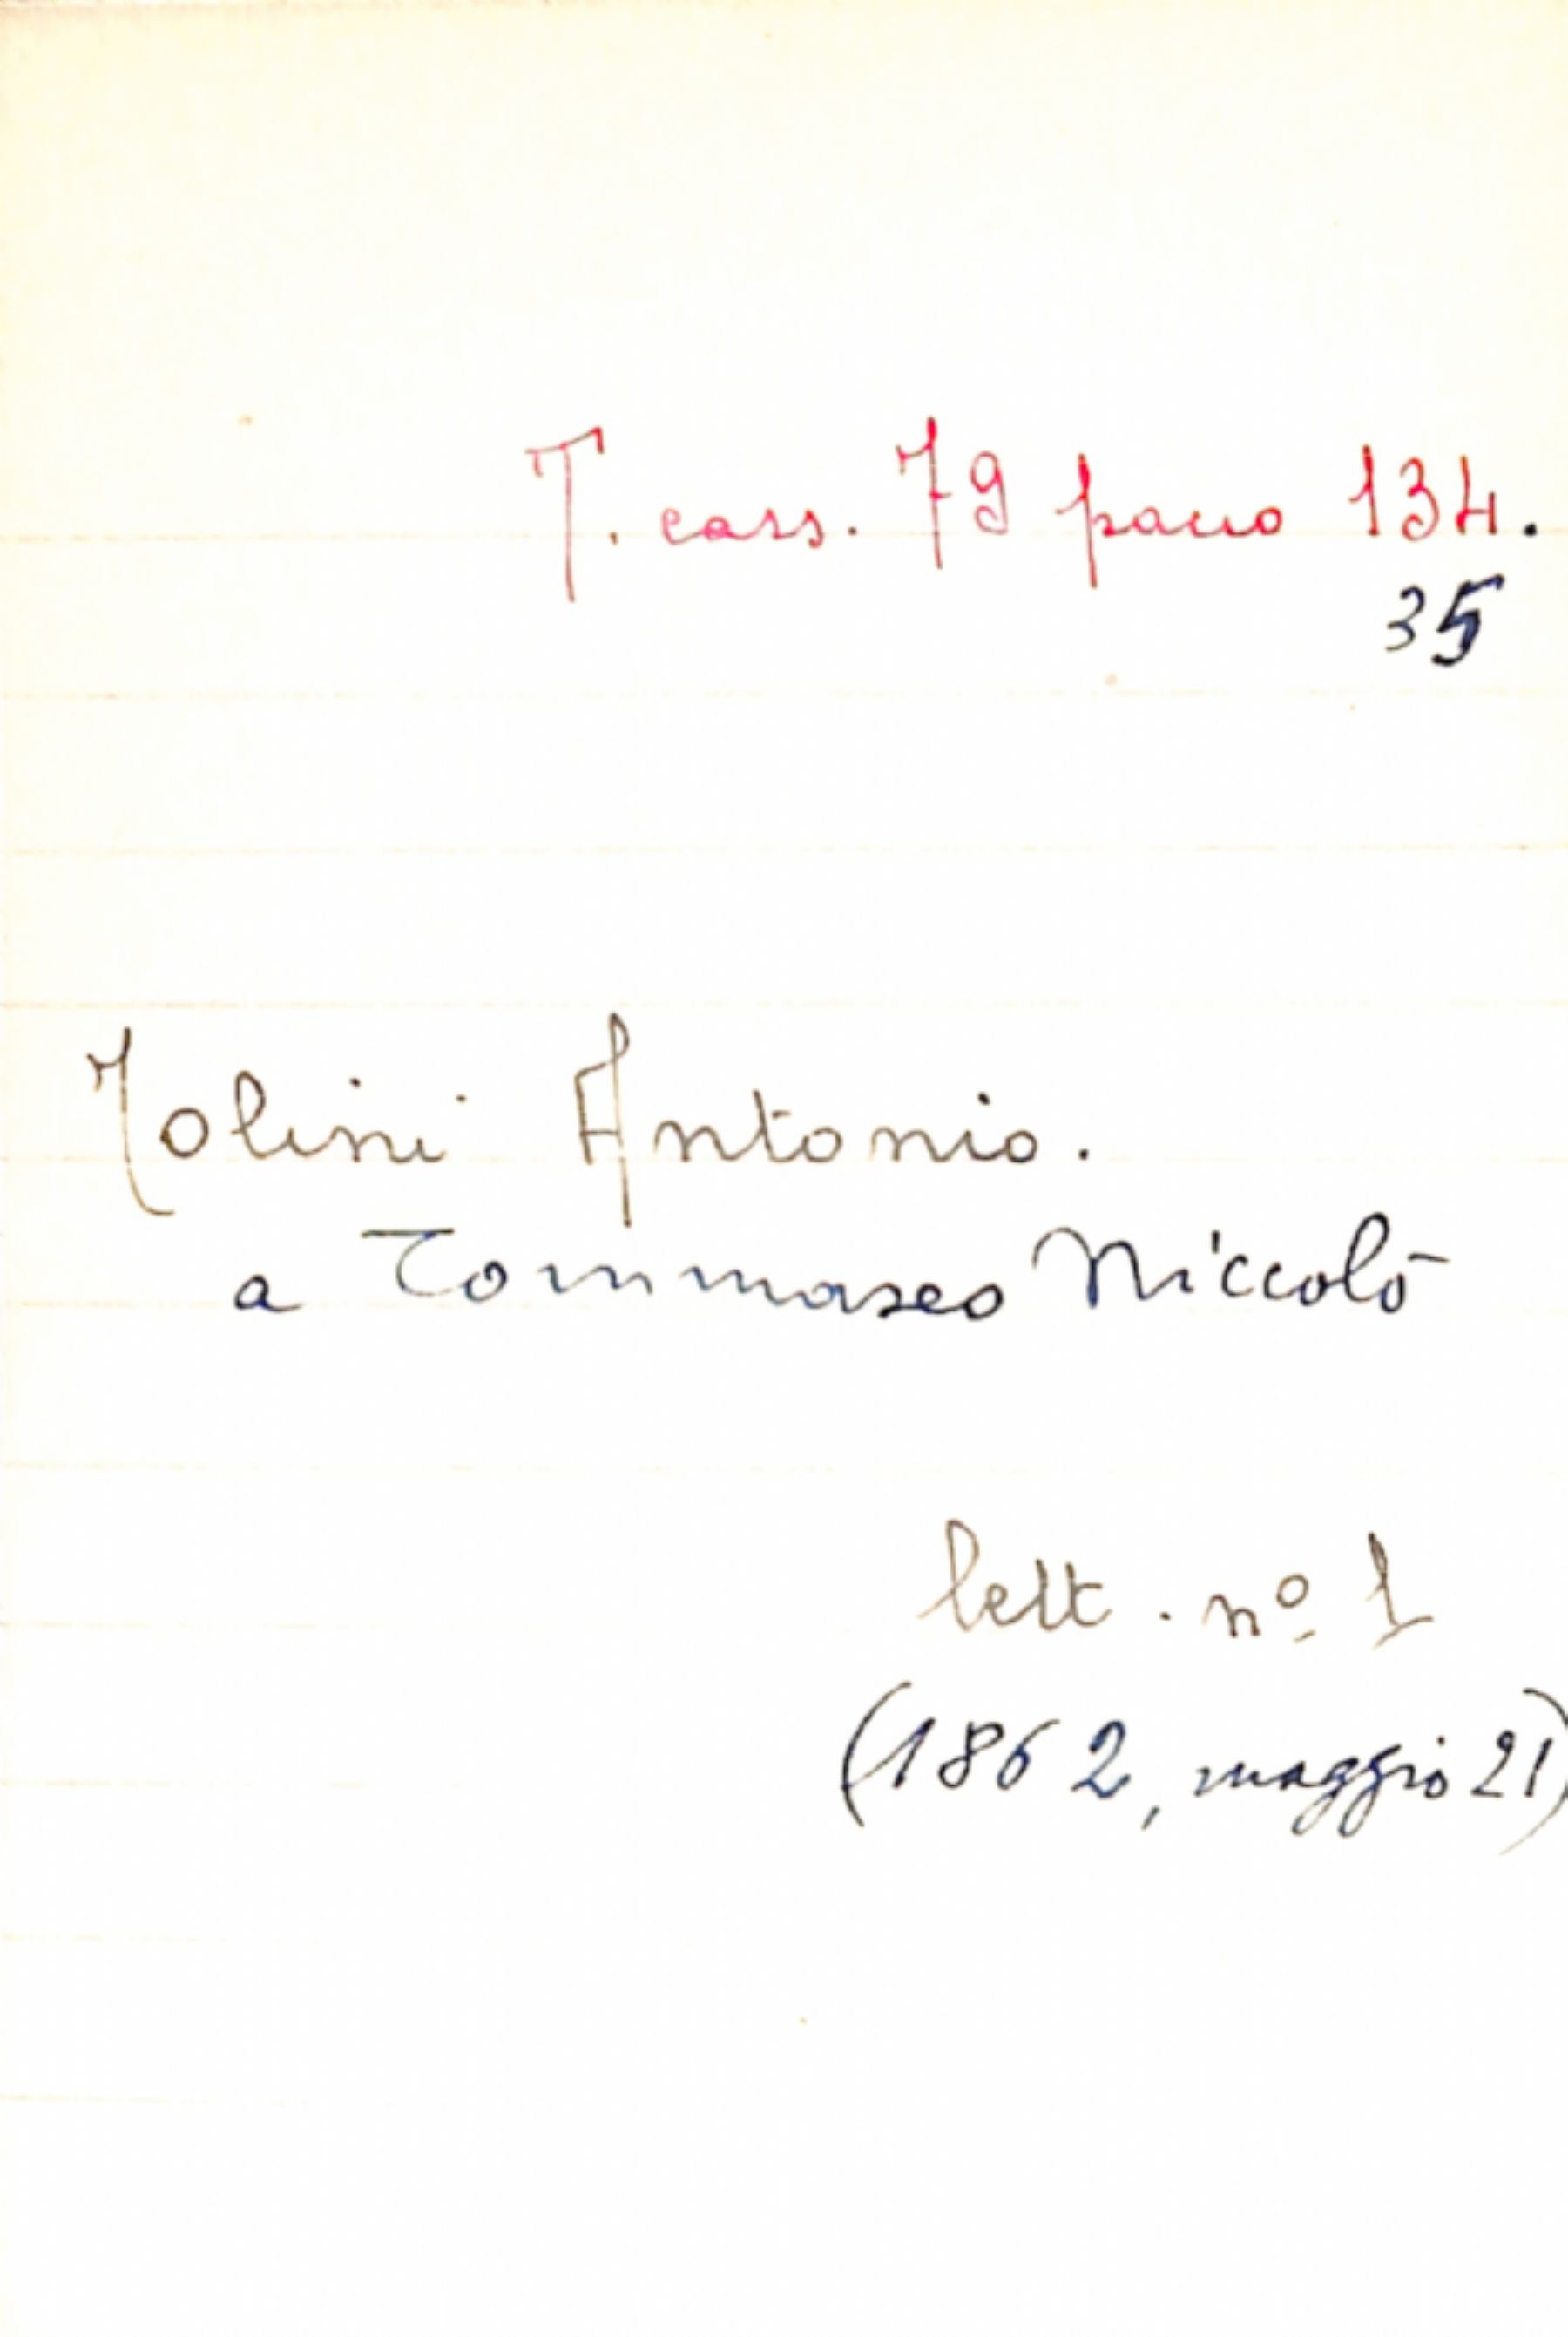 T. cass. 79 pacco 134.
35
Jolini Antonio.
a Tommaseo Niccolò
lett. nº 1
(1862, maggio 21)